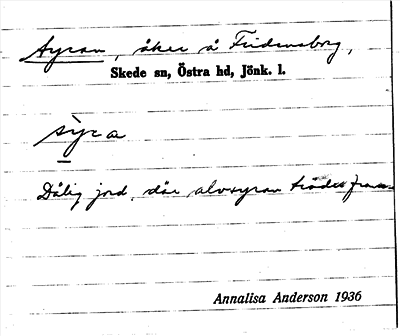 Syran, åker å Fridensborg,
Skede sn, Östra hd, Jönk. l.
syra
Dålig jord, där alvsyran träder fram
Annalisa Anderson 1936